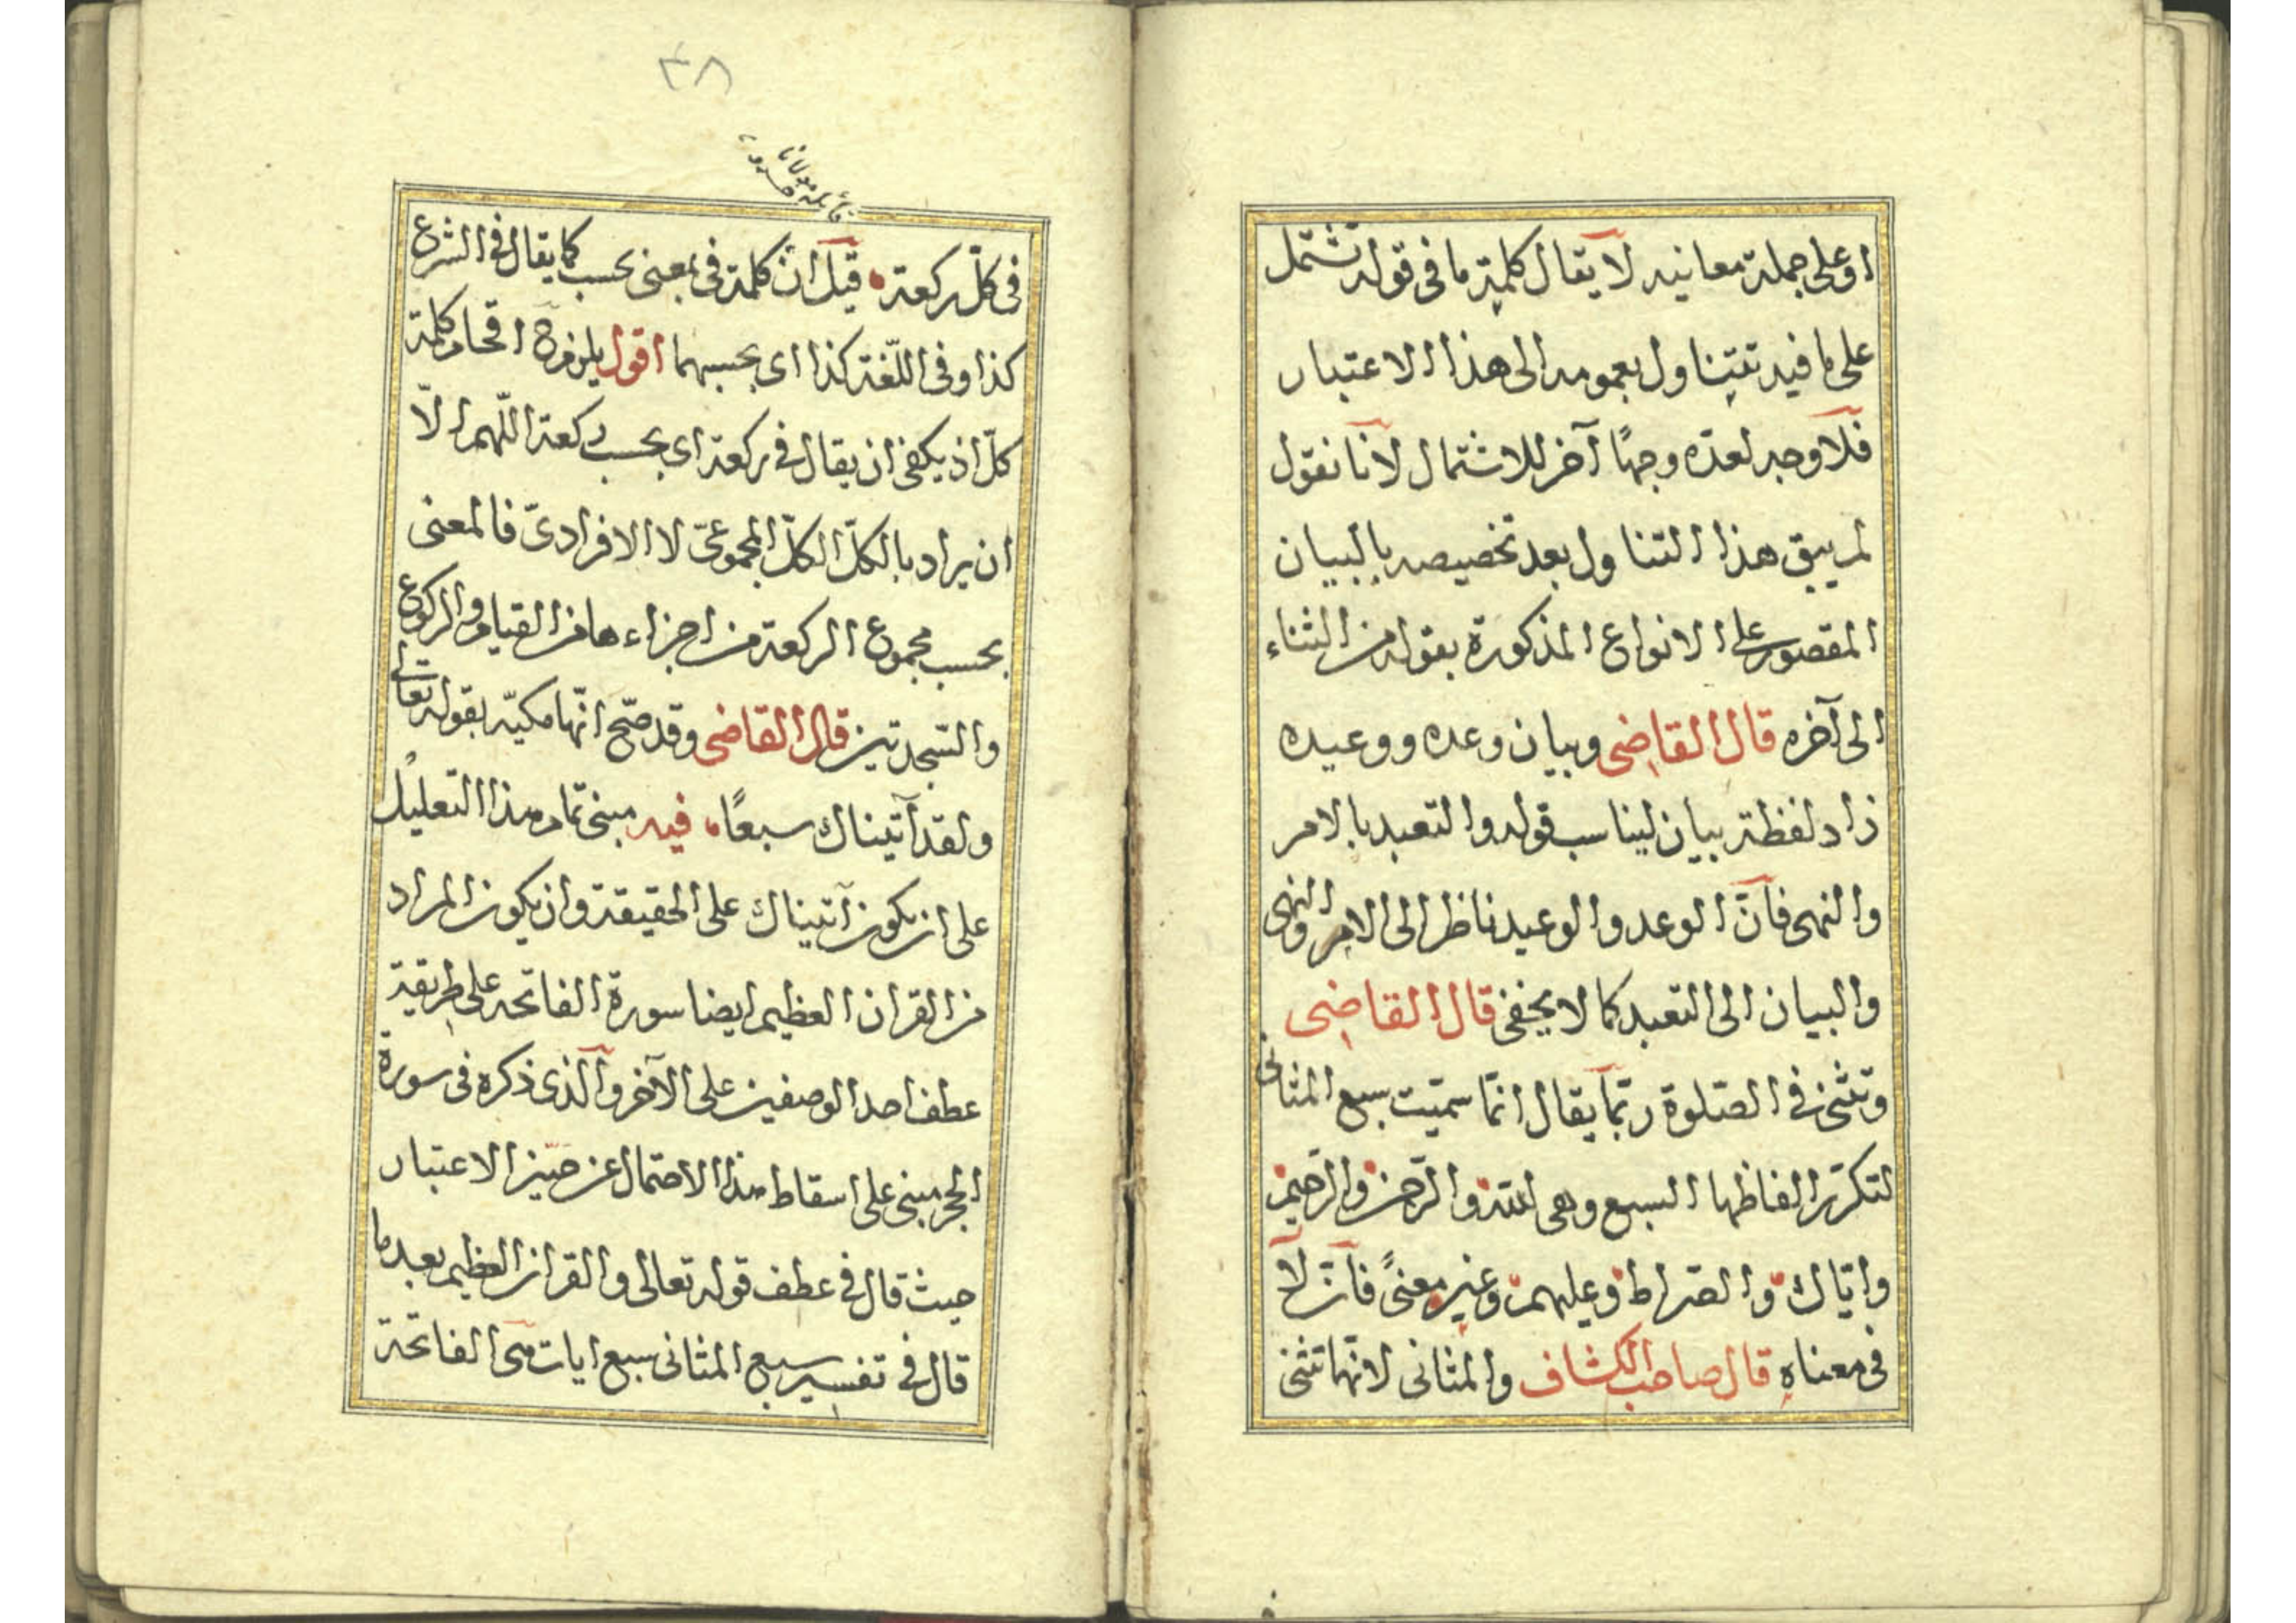 او على جملة معانيه لا يقال كلمة ما فى قوله تشتمل
على ما فيه تتناول بعمومه الى هذا الاعتبار
فلا وجه لعدّه وجهًا آخر للاشتمال لانا نقول
لم يبق هذا التناول بعد تخصيصه بالبيان
المقصور على الانواع المذكورة بقوله من الثناء
الى آخره قال القاضى وبيان وعده ووعيده
زاد لفظة بيان ليناسب قوله والتعبد بالامر
والنهى فانّ الوعد والوعيد ناظر الى الامر والنهى
والبيان الى التعبد كما لا يخفى قال القاضى
وتثنى فى الصّلوة ربّما يقال انّما سمّيت سبع المثانى
لتكرّر الفاظها السبع وهى الله والرّحمن والرّحيم
وايّاك والصّراط وعليهم وغير معنًى فانّ لا
فى معناه قال صاحب الكشاف والمثانى لانّها تثنى
٣٨
فى كلّ ركعة قيل انّ كلمة فى بمعنى بحسب كما يقال فى الشرع
كذا وفى اللّغة كذا اى بحسبهما اقول يلزمه اقحام كلمة
كلّ اذ يكفى ان يقال فى ركعة اى بحسب ركعة اللّهم الّا
ان يراد بالكلّ الكلّ المجموعىّ لا الافرادىّ فالمعنى
بحسب مجموع الركعة من اجزاءها من القيام والركوع
والسّجدتين قال القاضى وقد صّح انّها مكيّه بقوله تعالى
ولقد آتيناك سبعًا فيه مبنى تمام هذا التعليل
على ان يكون آتيناك على الحقيقة وان يكون المراد
من القران العظيم ايضا سورة الفاتحه على طريقة
عطف احد الوصفين على الآخر والذى ذكره فى سورة
الحجر مبنى على اسقاط هذا الاحتمال عن حيّز الاعتبار
حيث قال فى عطف قوله تعالى والقران العظيم بعد ما
قال فى تفسير سبع المثانى سبع ايات هى الفاتحة